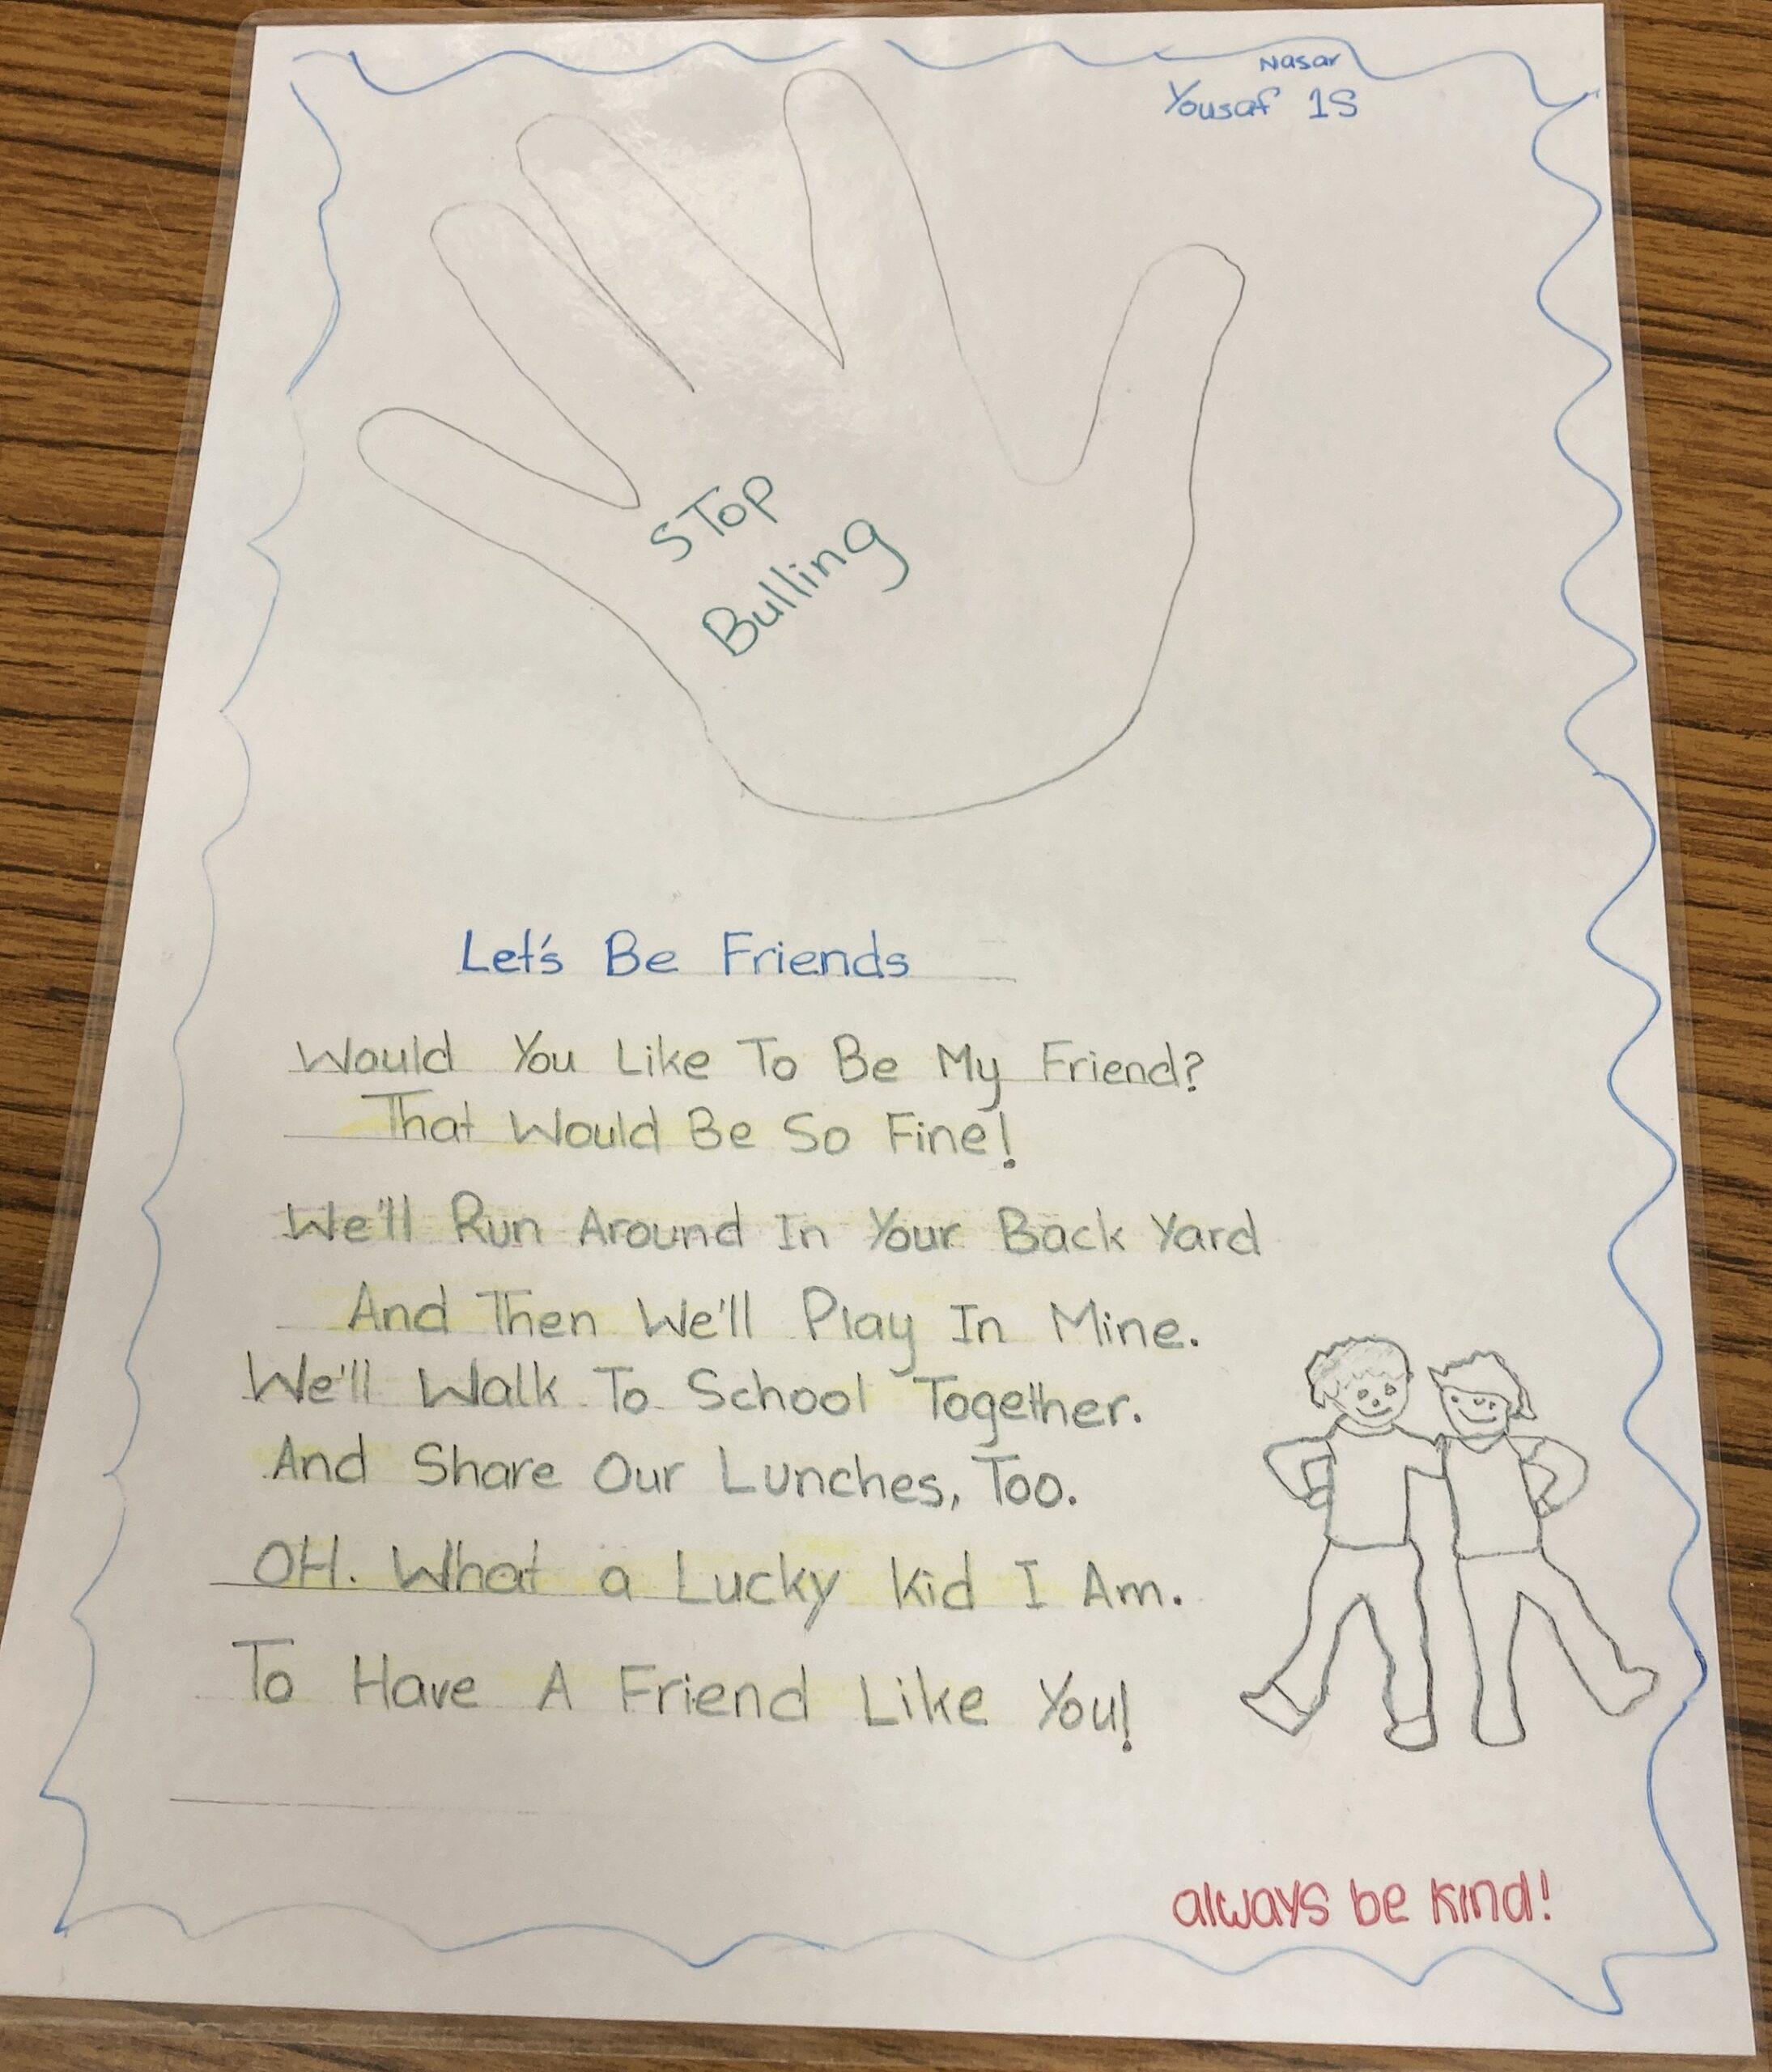 Nasar
Yousaf 1S
STOP
Bulling
Let's Be Friends
Would You Like To Be My Friend?
That Would Be So Fine!
We'll Run Around In Your Back Yard
And Then We'll Play In Mine.
We'll Walk To School Together.
And Share Our Lunches, Too.
OH. What a Lucky Kid I Am.
To Have A Friend Like You!
always be kind!